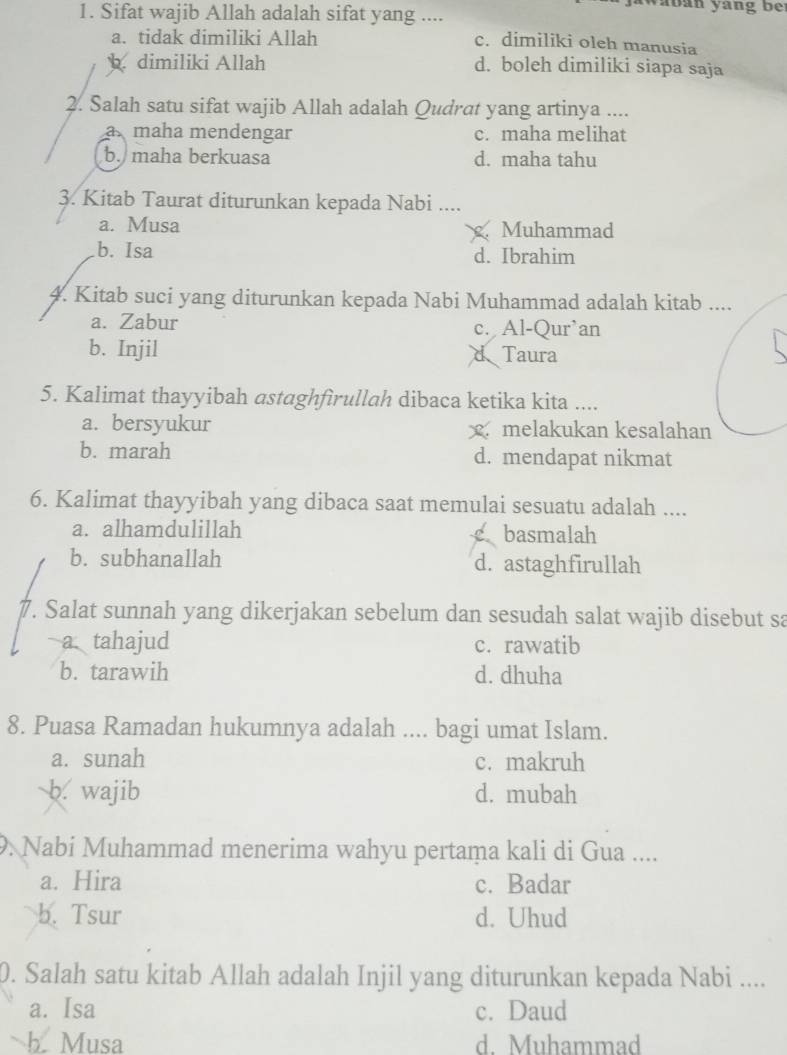 jawaban yang be
1. Sifat wajib Allah adalah sifat yang ....
a. tidak dimiliki Allah
c. dimiliki oleh manusia
b. dimiliki Allah
d. boleh dimiliki siapa saja
2. Salah satu sifat wajib Allah adalah Qudrat yang artinya ....
a. maha mendengar
c. maha melihat
b. maha berkuasa
d. maha tahu
3. Kitab Taurat diturunkan kepada Nabi ....
a. Musa
c. Muhammad
b. Isa
d. Ibrahim
4. Kitab suci yang diturunkan kepada Nabi Muhammad adalah kitab ....
a. Zabur
c. Al-Qur'an
b. Injil
d. Taura
5. Kalimat thayyibah astaghfirullah dibaca ketika kita ....
a. bersyukur
c. melakukan kesalahan
b. marah
d. mendapat nikmat
6. Kalimat thayyibah yang dibaca saat memulai sesuatu adalah ....
a. alhamdulillah
c. basmalah
b. subhanallah
d. astaghfirullah
7. Salat sunnah yang dikerjakan sebelum dan sesudah salat wajib disebut sa
a. tahajud
c. rawatib
b. tarawih
d. dhuha
8. Puasa Ramadan hukumnya adalah .... bagi umat Islam.
a. sunah
c. makruh
b. wajib
d. mubah
9. Nabi Muhammad menerima wahyu pertama kali di Gua ....
a. Hira
c. Badar
b. Tsur
d. Uhud
0. Salah satu kitab Allah adalah Injil yang diturunkan kepada Nabi ....
a. Isa
c. Daud
b. Musa
d. Muhammad